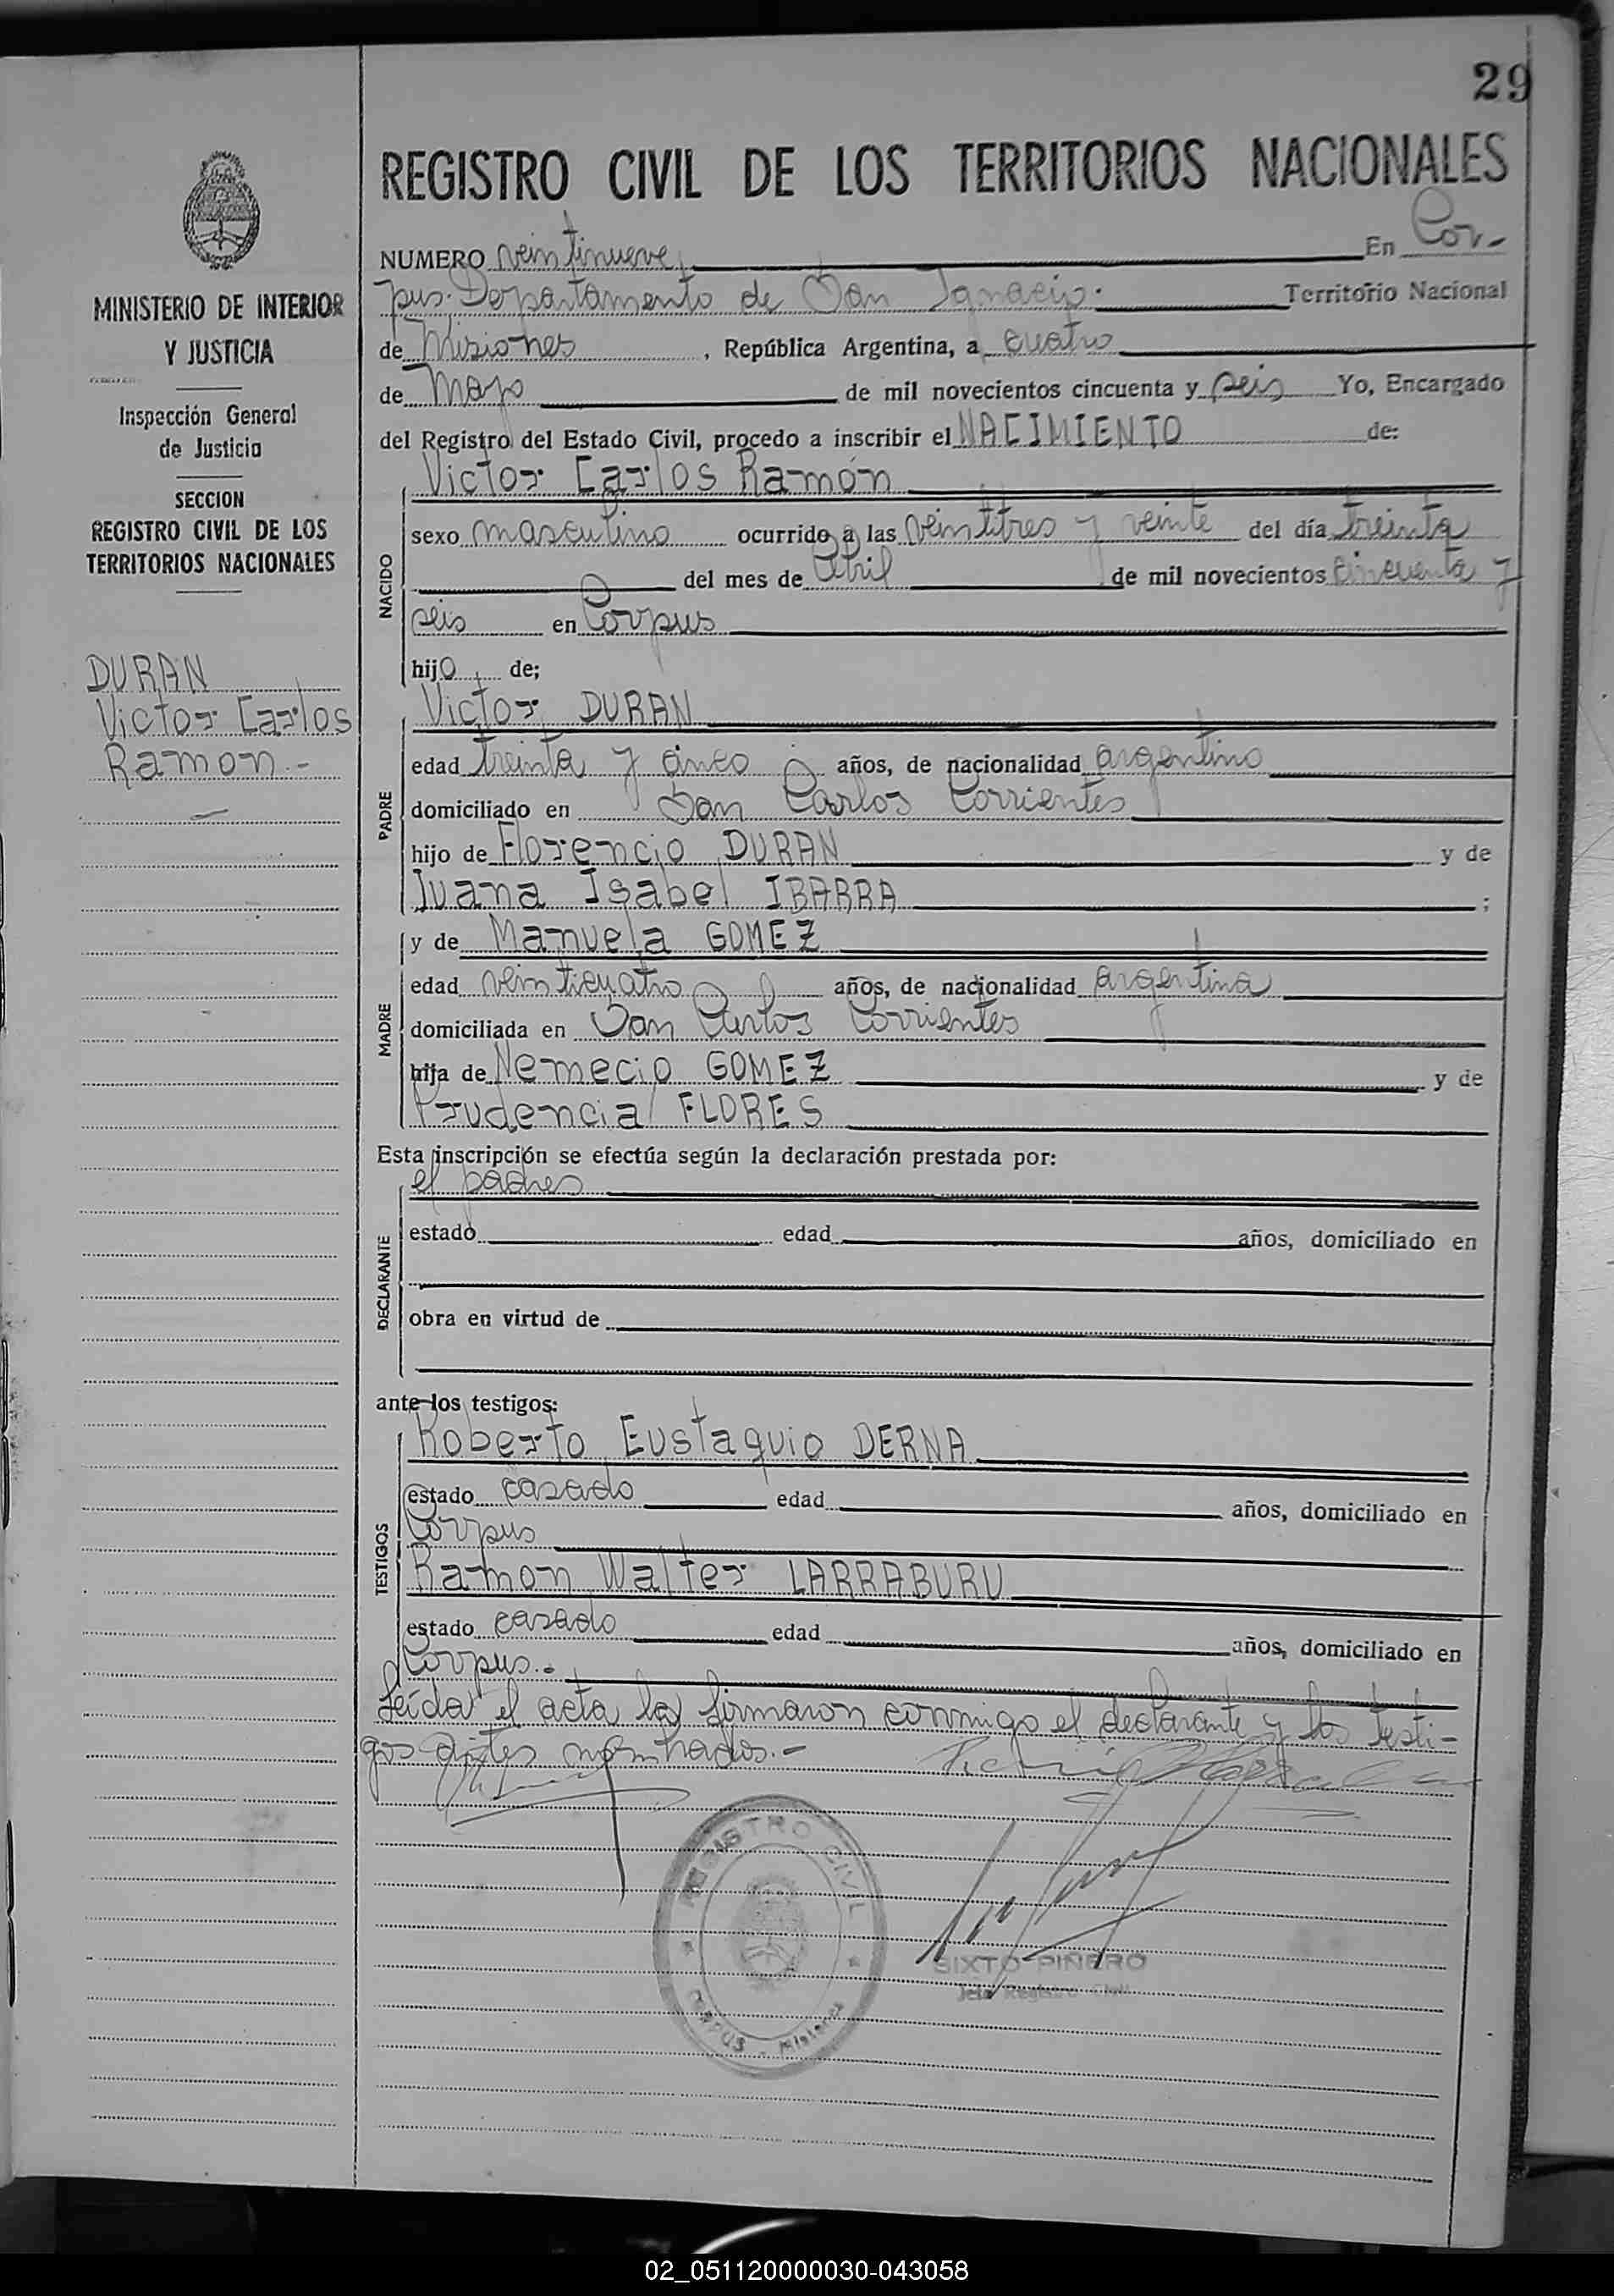 29
REGISTRO CIVIL DE LOS TERRITORIOS NACIONALES
MINISTERIO DE INTERIOR
Y JUSTICIA
Inspección General
de Justicia
SECCION
REGISTRO CIVIL DE LOS
TERRITORIOS NACIONALES
DURAN
Victor Carlos
Ramon.-
NUMERO veintinueve, En Cor-
pus. Departamento de San Ignacio. Territorio Nacional
de Misiones , República Argentina, a cuatro
de Mayo de mil novecientos cincuenta y seis Yo, Encargado
del Registro del Estado Civil, procedo a inscribir el NACIMIENTO de:
Victor Carlos Ramón
NACIDO
sexo masculino ocurrido a las veintitres y veinte del día treinta
del mes de Abril de mil novecientos cincuenta y
seis en Corpus
hijo de;
Victor DURAN
PADRE
edad treinta y cinco años, de nacionalidad argentino
domiciliado en San Carlos Corrientes
hijo de Florencio DURAN y de
Juana Isabel IBARRA ;
y de Manuela GOMEZ
MADRE
edad veinticuatro años, de nacionalidad argentina
domiciliada en San Carlos Corrientes
hija de Nemecio GOMEZ y de
Prudencia FLORES
Esta inscripción se efectúa según la declaración prestada por:
el padres
DECLARANTE
estado edad años, domiciliado en
obra en virtud de
ante los testigos:
Roberto Eustaquio DERNA
TESTIGOS
estado casado edad años, domiciliado en
Corpus
Ramon Walter LARRABURU
estado casado edad años, domiciliado en
Corpus.-
Leída el acta la firmaron conmigo el declarante y los testi-
gos antes nombrados.-
REGISTRO CIVIL
CORPUS - Misiones
SIXTO PIÑERO
Jefe Registro Civil
02_051120000030-043058